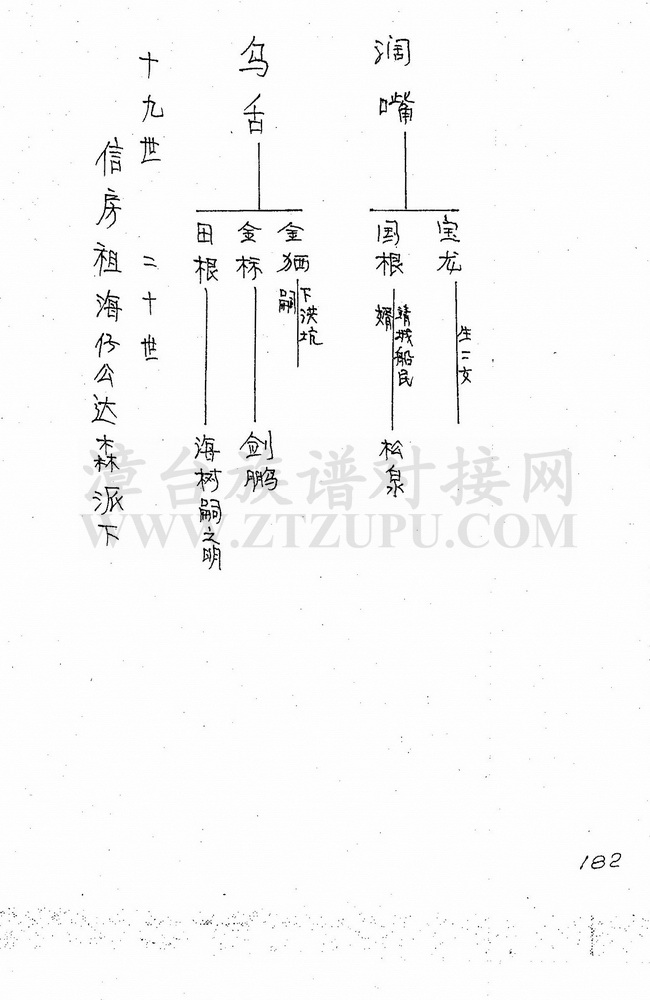 阔嘴
宝龙
生二女
国根
靖城船民
婿
松泉
乌舌
金狮
下洪坑
嗣
金标
剑鹏
田根
海树嗣之明
十九世 二十世
信房祖海仔公达森派下
漳台族谱对接网
WWW.ZTZUPU.COM
182